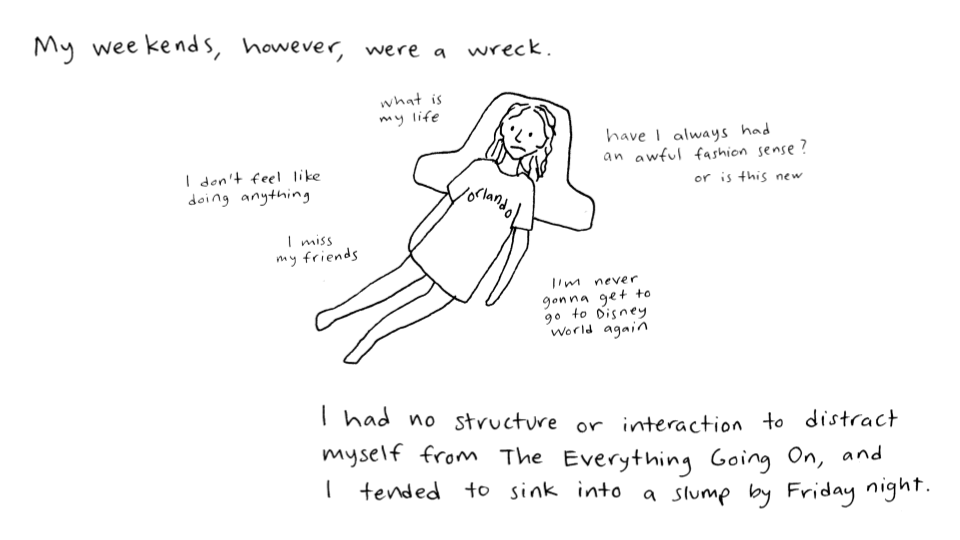 My weekends, however, were a wreck.
what is
my life
have I always had
an awful fashion sense?
or is this new
I don't feel like
doing anything
orlando
I miss
my friends
I'm never
gonna get to
go to Disney
World again
I had no structure or interaction to distract
myself from The Everything Going On, and
I tended to sink into a slump by Friday night.